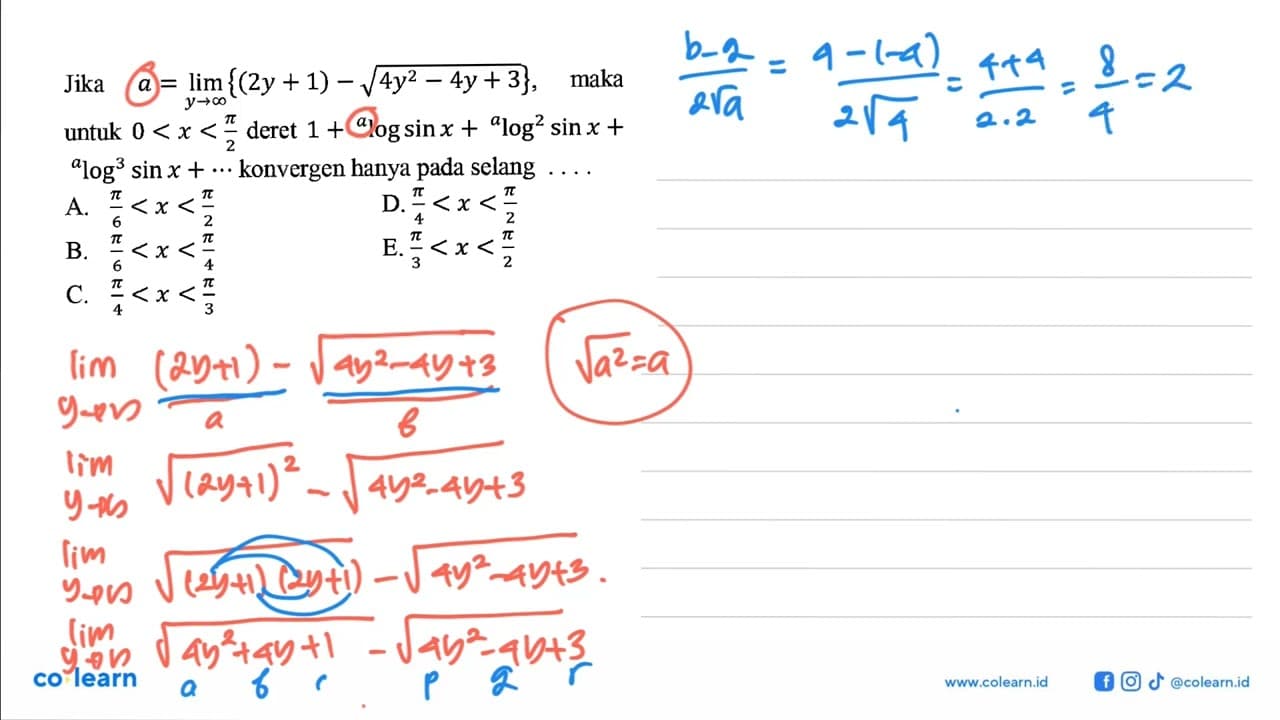 Jika a = lim y→∞ {(2y + 1) − √(4y² − 4y + 3)}, maka
untuk 0 < x < π/2 deret 1 + ᵃlog sin x + ᵃlog² sin x +
ᵃlog³ sin x + ⋯ konvergen hanya pada selang ....
A. π/6 < x < π/2
D. π/4 < x < π/2
B. π/6 < x < π/4
E. π/3 < x < π/2
C. π/4 < x < π/3
lim y→∞ (2y+1) − √(4y²−4y+3)
a b
√a² = a
lim y→∞ √(2y+1)² − √(4y²−4y+3)
lim y→∞ √((2y+1)(2y+1)) − √(4y²−4y+3).
lim y→∞ √(4y²+4y+1) − √(4y²−4y+3)
a b c p q r
(b−q)/(2√a) = (4−(−4))/(2√4) = (4+4)/(2.2) = 8/4 = 2
co learn
www.colearn.id
@colearn.id